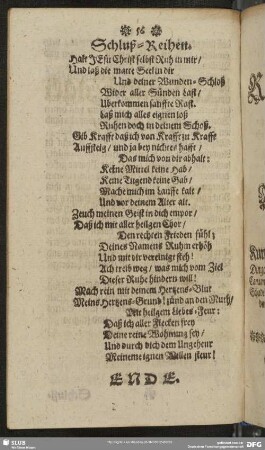 56
Schluß-Reihen.
Halt JEsu Christ selbst Ruh in mir/
Und laß die matte Seel in dir
Und deiner Wunden-Schloß
Wider aller Sünden Last/
Uberkommen sanffte Rast.
Laß mich alles eignen loß
Ruhen doch in deinem Schoß.
Gib Krafft daß ich von Krafft zu Krafft
Auffsteig/ und ja bey nichtes hafft/
Das mich von dir abhalt:
Keine Mittel keine Hab/
Keine Tugend keine Gab/
Mache mich im Lauffe kalt/
Und vor deinem Alter alt.
Zeuch meinen Geist in dich empor/
Daß ich mit aller heilgen Chor/
Den rechten Frieden fühl;
Deines Namens Ruhm erhöh
Und mit dir vereinigt steh!
Ach treib weg/ was mich vom Ziel
Dieser Ruhe hindern will!
Mach rein mit deinem Hertzens-Blut
Meins Hertzens-Grund! zünd an den Muth/
Mit heilgem Liebes-Feur:
Daß ich aller Flecken frey
Deine reine Wohnung sey/
Und durch dich dem Ungeheur
Meinem eignen Willen steur!
ENDE.
SLUB
DFG